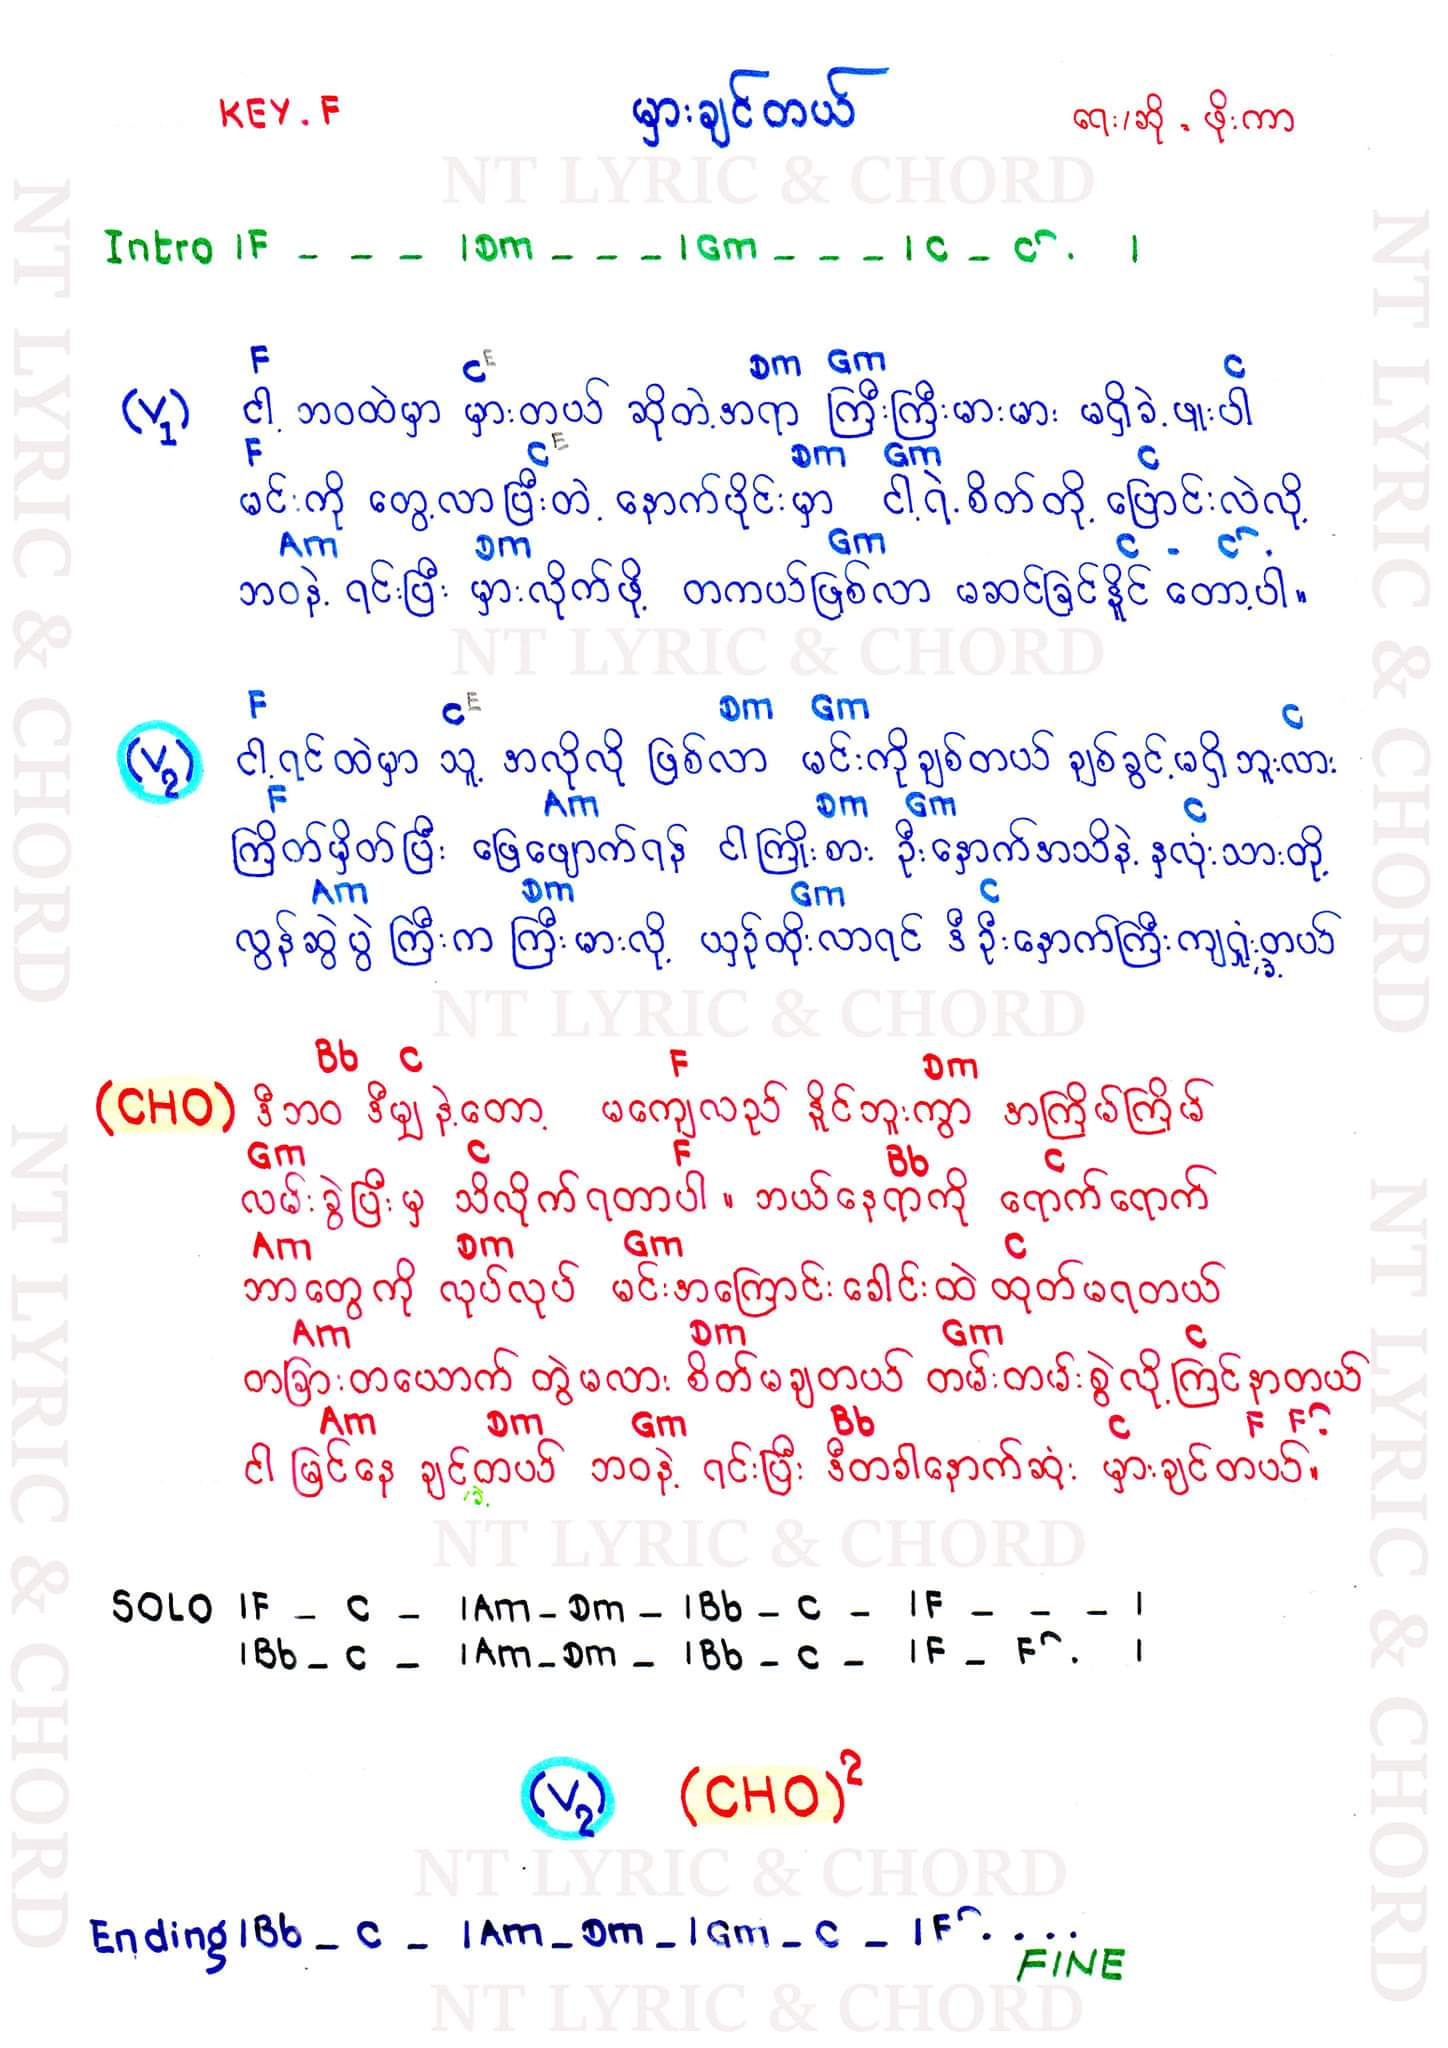 KEY.F မှားချင်တယ် ရေး/ဆို - ဖိုးကာ
NT LYRIC & CHORD
Intro |F _ _ _ |Dm _ _ _ |Gm _ _ _ |C _ C⌒. |
F C E Dm Gm C
(V1) ငါ့ ဘဝထဲမှာ မှားတယ် ဆိုတဲ့အရာ ကြီးကြီးမားမား မရှိခဲ့ဖူးပါ
F C E Dm Gm C
မင်းကို တွေ့လာပြီးတဲ့ နောက်ပိုင်းမှာ ငါ့ရဲ့စိတ်တို့ ပြောင်းလဲလို့
Am Dm Gm C - C⌒.
ဘဝနဲ့ ရင်းပြီး မှားလိုက်ဖို့ တကယ်ဖြစ်လာ မဆင်ခြင်နိူင် တော့ပါ။
NT LYRIC & CHORD
F C E Dm Gm C
(V2) ငါ့ရင်ထဲမှာ သူ့ အလိုလို ဖြစ်လာ မင်းကိုချစ်တယ် ချစ်ခွင့်မရှိဘူးလား
F Am Dm Gm C
ကြိတ်မှိတ်ပြီး ဖြေဖျောက်ရန် ငါကြိုးစား ဦးနှောက်အသိနဲ့ နှလုံးသားတို့
Am Dm Gm C
လွန်ဆွဲပွဲ ကြီးက ကြီးမားလို့ ယှဉ်ထိုးလာရင် ဒီဦးနှောက်ကြီးကျရှုံးတယ်
NT LYRIC & CHORD
Bb C F Dm
(CHO) ဒီဘဝ ဒီမျှနဲ့တော့ မကျေလည် နိူင်ဘူးကွာ အကြိမ်ကြိမ်
Gm C F Bb C
လမ်းခွဲပြီးမှ သိလိုက်ရတာပါ။ ဘယ်နေရာကို ရောက်ရောက်
Am Dm Gm C
ဘာတွေကို လုပ်လုပ် မင်းအကြောင်းခေါင်းထဲ ထုတ်မရတယ်
Am Dm Gm C
တခြားတယောက် တွဲမလား စိတ်မချတယ် တမ်းတမ်းစွဲလို့ကြင်နာတယ်
Am Dm Gm Bb C F F⌒.
ငါ မြင်နေ ချင်တယ် ဘဝနဲ့ ရင်းပြီး ဒီတခါနောက်ဆုံး မှားချင်တယ်။
NT LYRIC & CHORD
SOLO |F _ C _ |Am _ Dm _ |Bb _ C _ |F _ _ _ |
|Bb _ C _ |Am _ Dm _ |Bb _ C _ |F _ F⌒. |
(V2) (CHO)2
NT LYRIC & CHORD
Ending |Bb _ C _ |Am _ Dm _ |Gm _ C _ |F⌒. . . .
FINE
NT LYRIC & CHORD
NT LYRIC & CHORD
NT LYRIC & CHORD
NT LYRIC & CHORD
NT LYRIC & CHORD